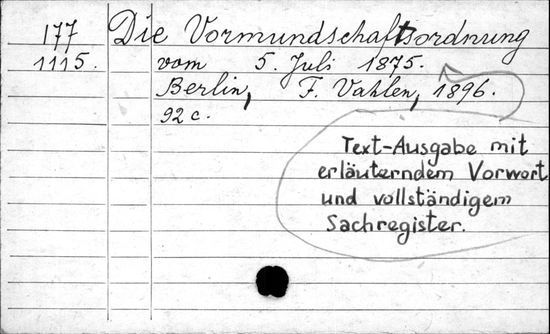 177 Die Vormundschaftsordnung
1115. vom 5. Juli 1875.
Berlin, F. Vahlen, 1896.
92 c.
Text-Ausgabe mit
erläuterndem Vorwort
und vollständigem
Sachregister.